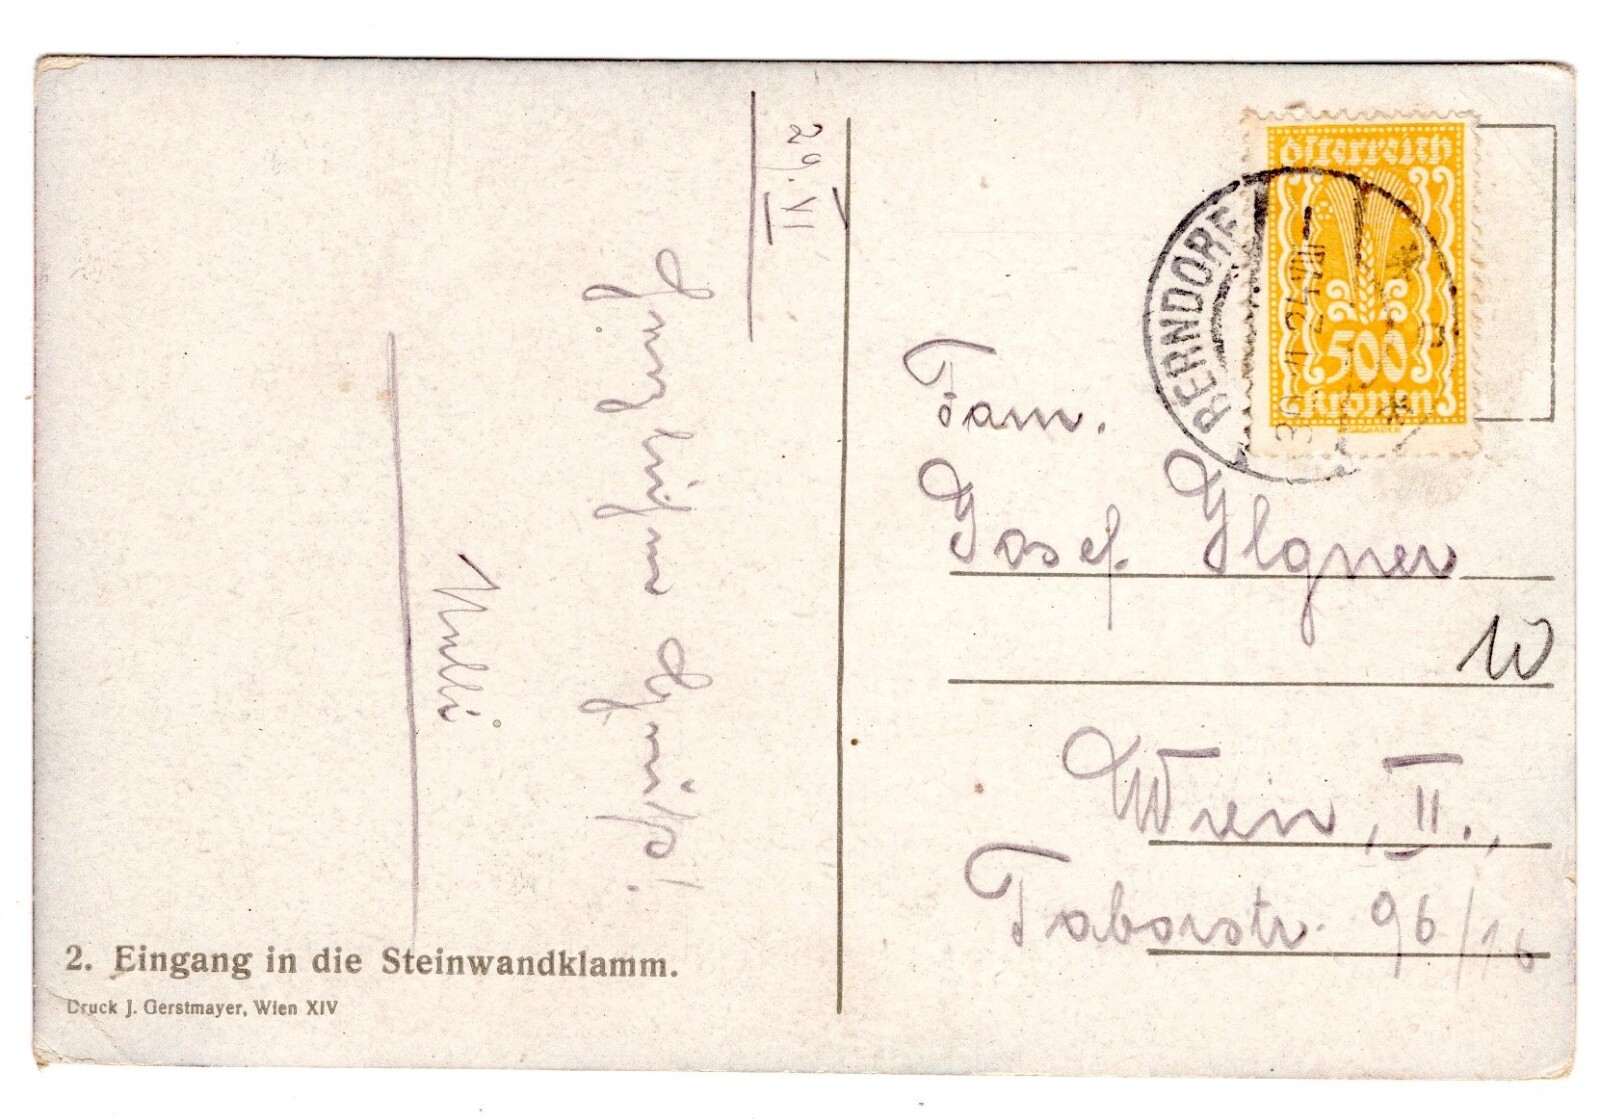 29. VI.
Herzlichen Grüße!
2. Eingang in die Steinwandklamm.
Druck J. Gerstmayer, Wien XIV
Österreich
500
Kronen
BERNDORF
24 VIII
Fam.
Josef Ilgner
10
Wien, II.,
Taborstr. 96/16